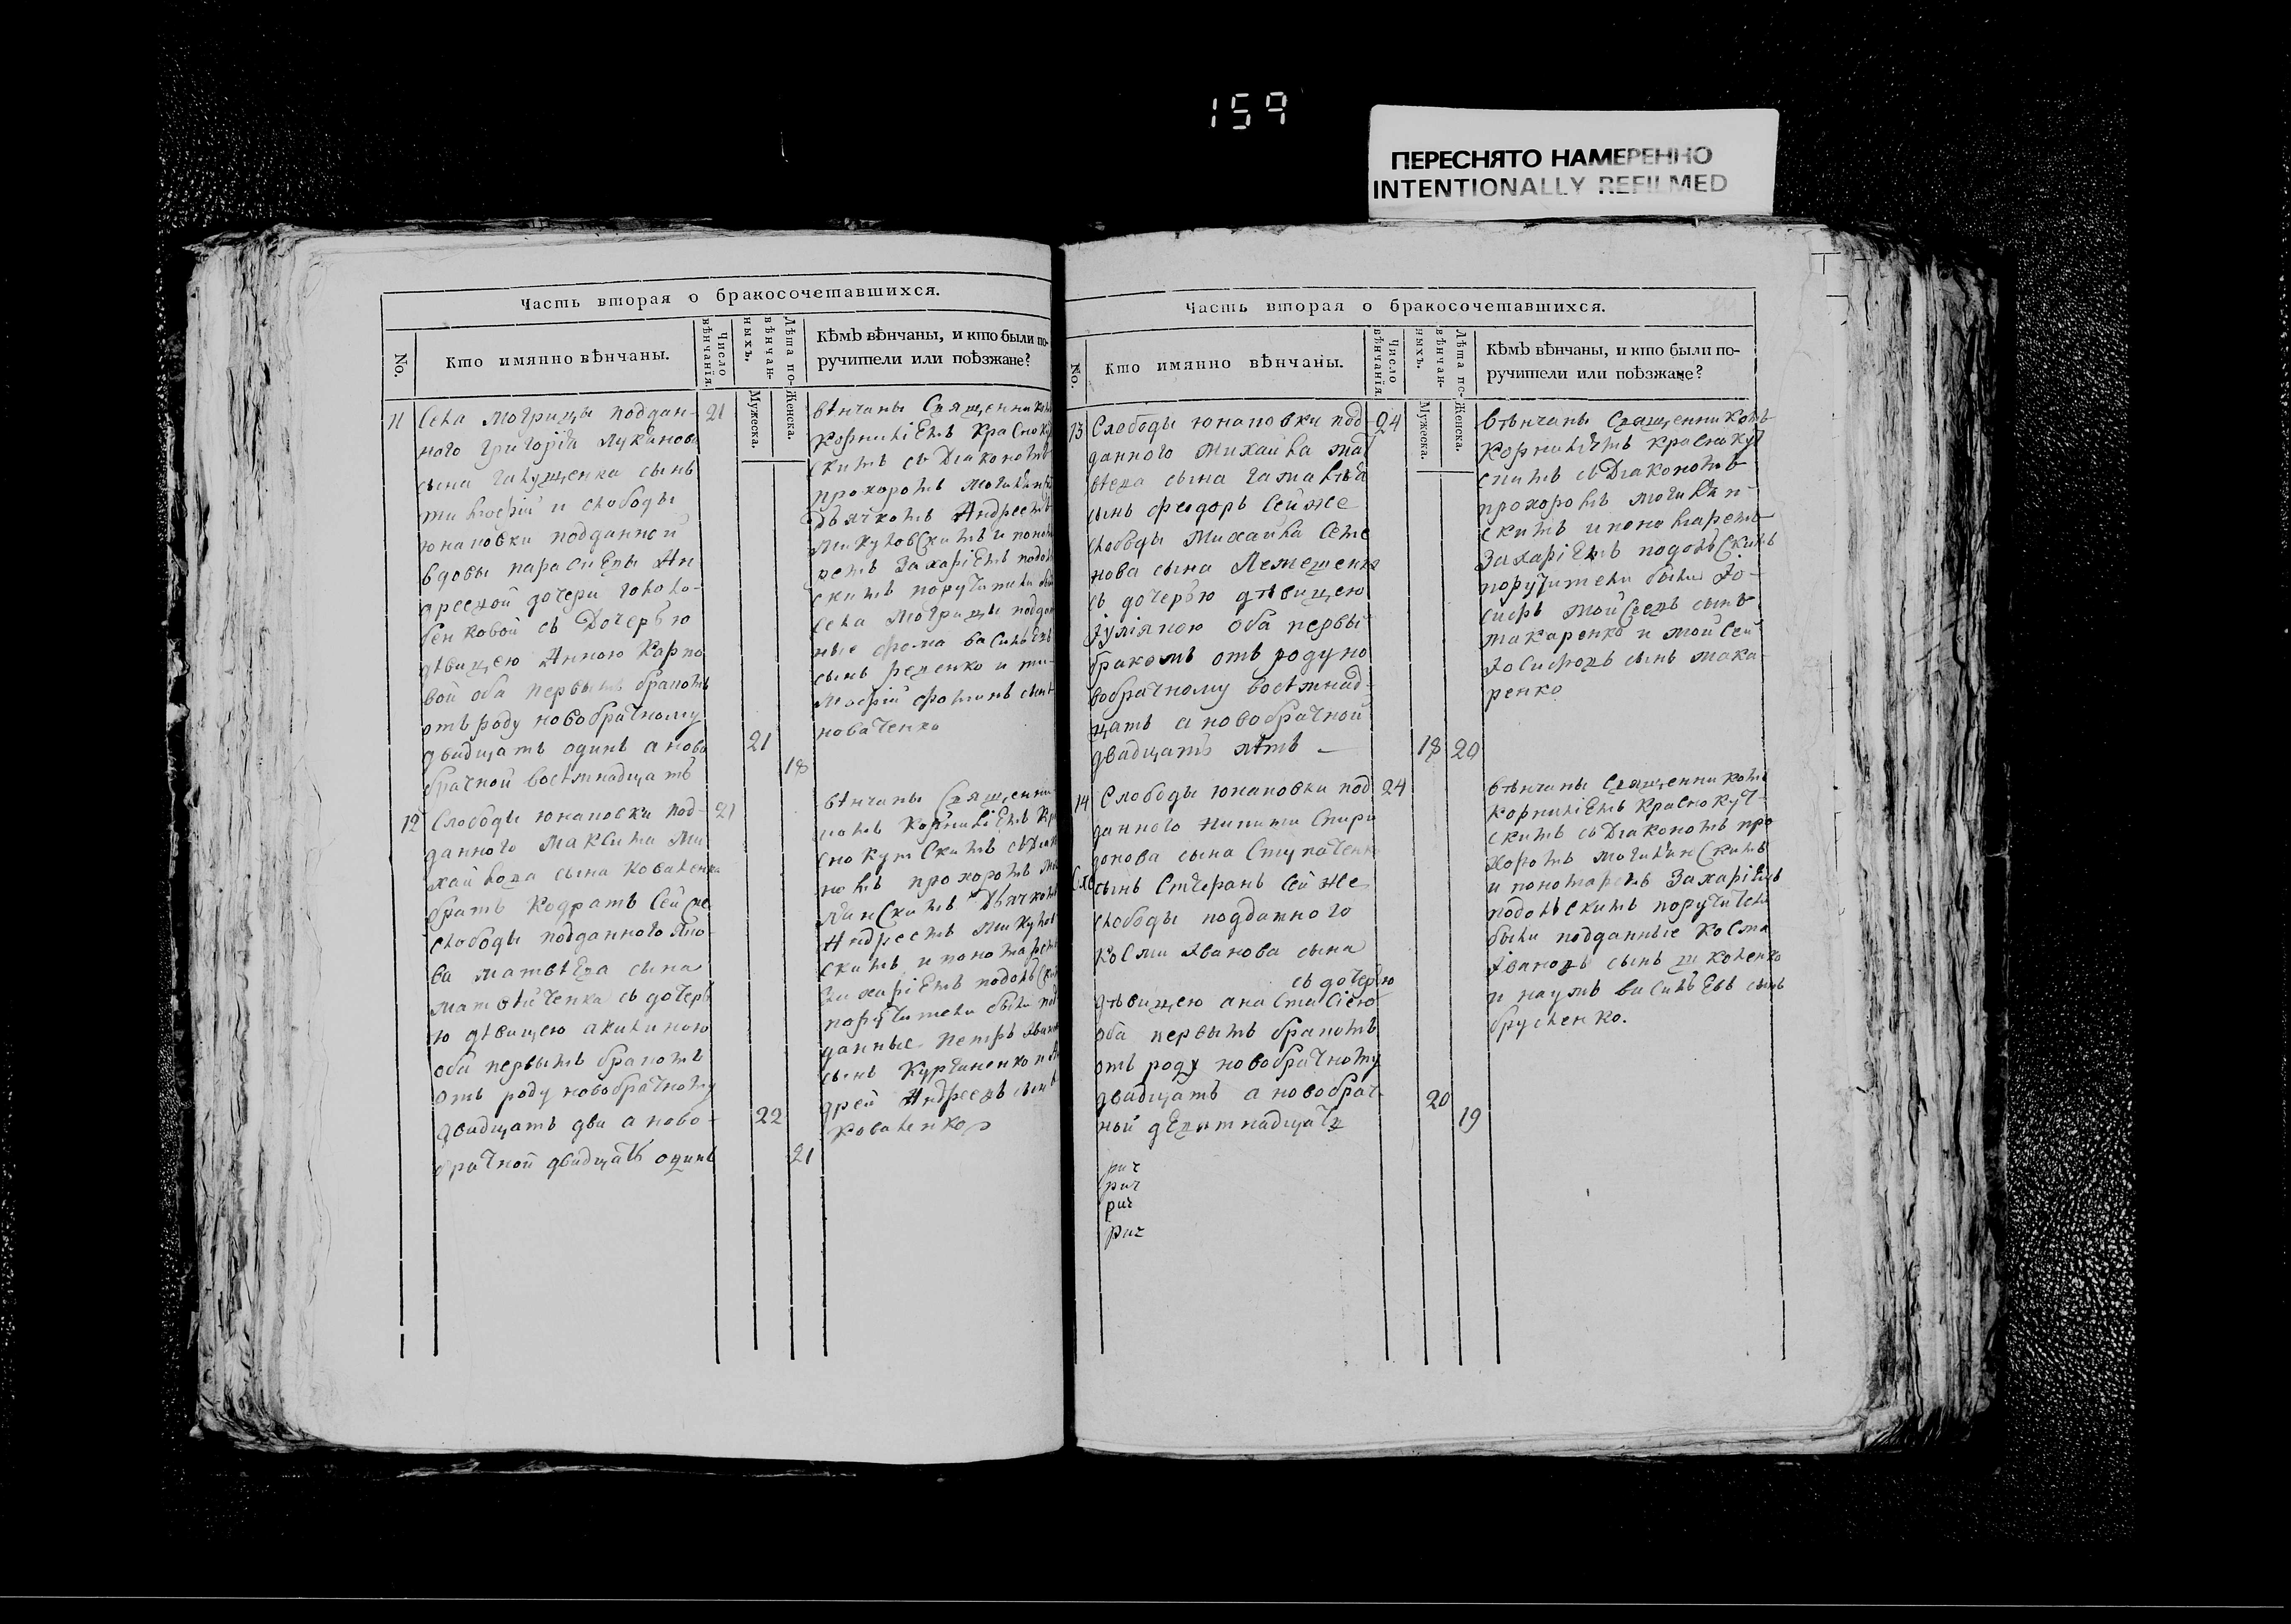 159
ПЕРЕСНЯТО НАМЕРЕННО
INTENTIONALLY REFILMED
Часть вторая о бракосочетавшихся.
No.
Кто имянно вѣнчаны.
Число вѣнчанія.
Лѣта по-
вѣнчан-
ныхъ.
Мужеска.
Женска.
Кѣмъ вѣнчаны, и кто были по-
ручители или поѣзжане?
11
Села могрицы поддан-
ного Григорія Лукянова
сына сынъ
тимофѣй и слободы
юнаковки подданной
вдовы параскевы Ан
дреевой дочери голо-
бенковой съ Дочерью
дѣвицею Анною Карпо
вой оба первымъ бракомъ
отъ роду новобрачному
двадцать одинъ а ново
брачной восемнадцать
21
21
18
вѣнчаны Священникомъ
Корниліемъ Краснокут
скимъ съ Діакономъ
прохоромъ
Дьячкомъ Андреемъ
и поном
ремъ Захаріемъ подол
скимъ поручители были
села могрицы поддан
ные фома василіевъ
сынъ реденко и ти-
мофѣй сынъ
новаченко
12
Слободы юнаковки под-
данного Максима Ми
хайлова сына Коваленка
братъ Кодратъ Сей же
слободы подданного
ва матвѣева сына
матвѣйченка съ дочерь
ю дѣвицею акилиною
оба первымъ бракомъ
отъ роду новобрачному
двадцать два а ново-
брачной двадцать одинъ
21
22
21
вѣнчаны Священни-
комъ Корниліемъ Кра
снокутскимъ съ Діако
номъ прохоромъ
Дьячкомъ
Андреемъ
скимъ и пономаремъ
Захаріемъ подолскимъ
поручители были под
данные Петръ Иванов
сынъ Курченко и Ан
дрей Андреевъ сынъ
Коваленко
Часть вторая о бракосочетавшихся.
No.
Кто имянно вѣнчаны.
Число вѣнчанія.
Лѣта по-
вѣнчан-
ныхъ.
Мужеска.
Женска.
Кѣмъ вѣнчаны, и кто были по-
ручители или поѣзжане?
13
Слободы юнаковки под
данного Михаила мат
вѣева сына гамалѣя
сынъ феодоръ Сей же
слободы Михаила Семе
нова сына Лемешенка
съ дочерью дѣвицею
Іуліяною оба первы
бракомъ отъ роду но
вобрачному восемнад-
цать а новобрачной
двадцать лѣтъ —
24
18
20
вѣнчаны Священникомъ
Корниліемъ Краснокут
скимъ съ Діакономъ
прохоромъ могилян-
скимъ и пономаремъ
Захаріемъ подолскимъ
поручители были Іо-
сифъ мойсеевъ сынъ
макаренко и мойсей
Іосифовъ сынъ мака-
ренко
14
Слободы юнаковки под
данного Никиты Спири
донова сына Ступаченка
сынъ Стефанъ Сей же
слободы подданного
Козми Иванова сына
съ дочерью
дѣвицею анастасіею
оба первымъ бракомъ
отъ роду новобрачному
двадцать а новобрач-
ной девятнадцать
24
20
19
вѣнчаны Священникомъ
Корниліемъ Краснокут-
скимъ съ Діакономъ про
хоромъ могилянскимъ
и пономаремъ Захаріемъ
подолскимъ поручители
были подданные Косма
Ивановъ сынъ
и наумъ василіевъ сынъ
брусенко.
риг
риг
риг
риг